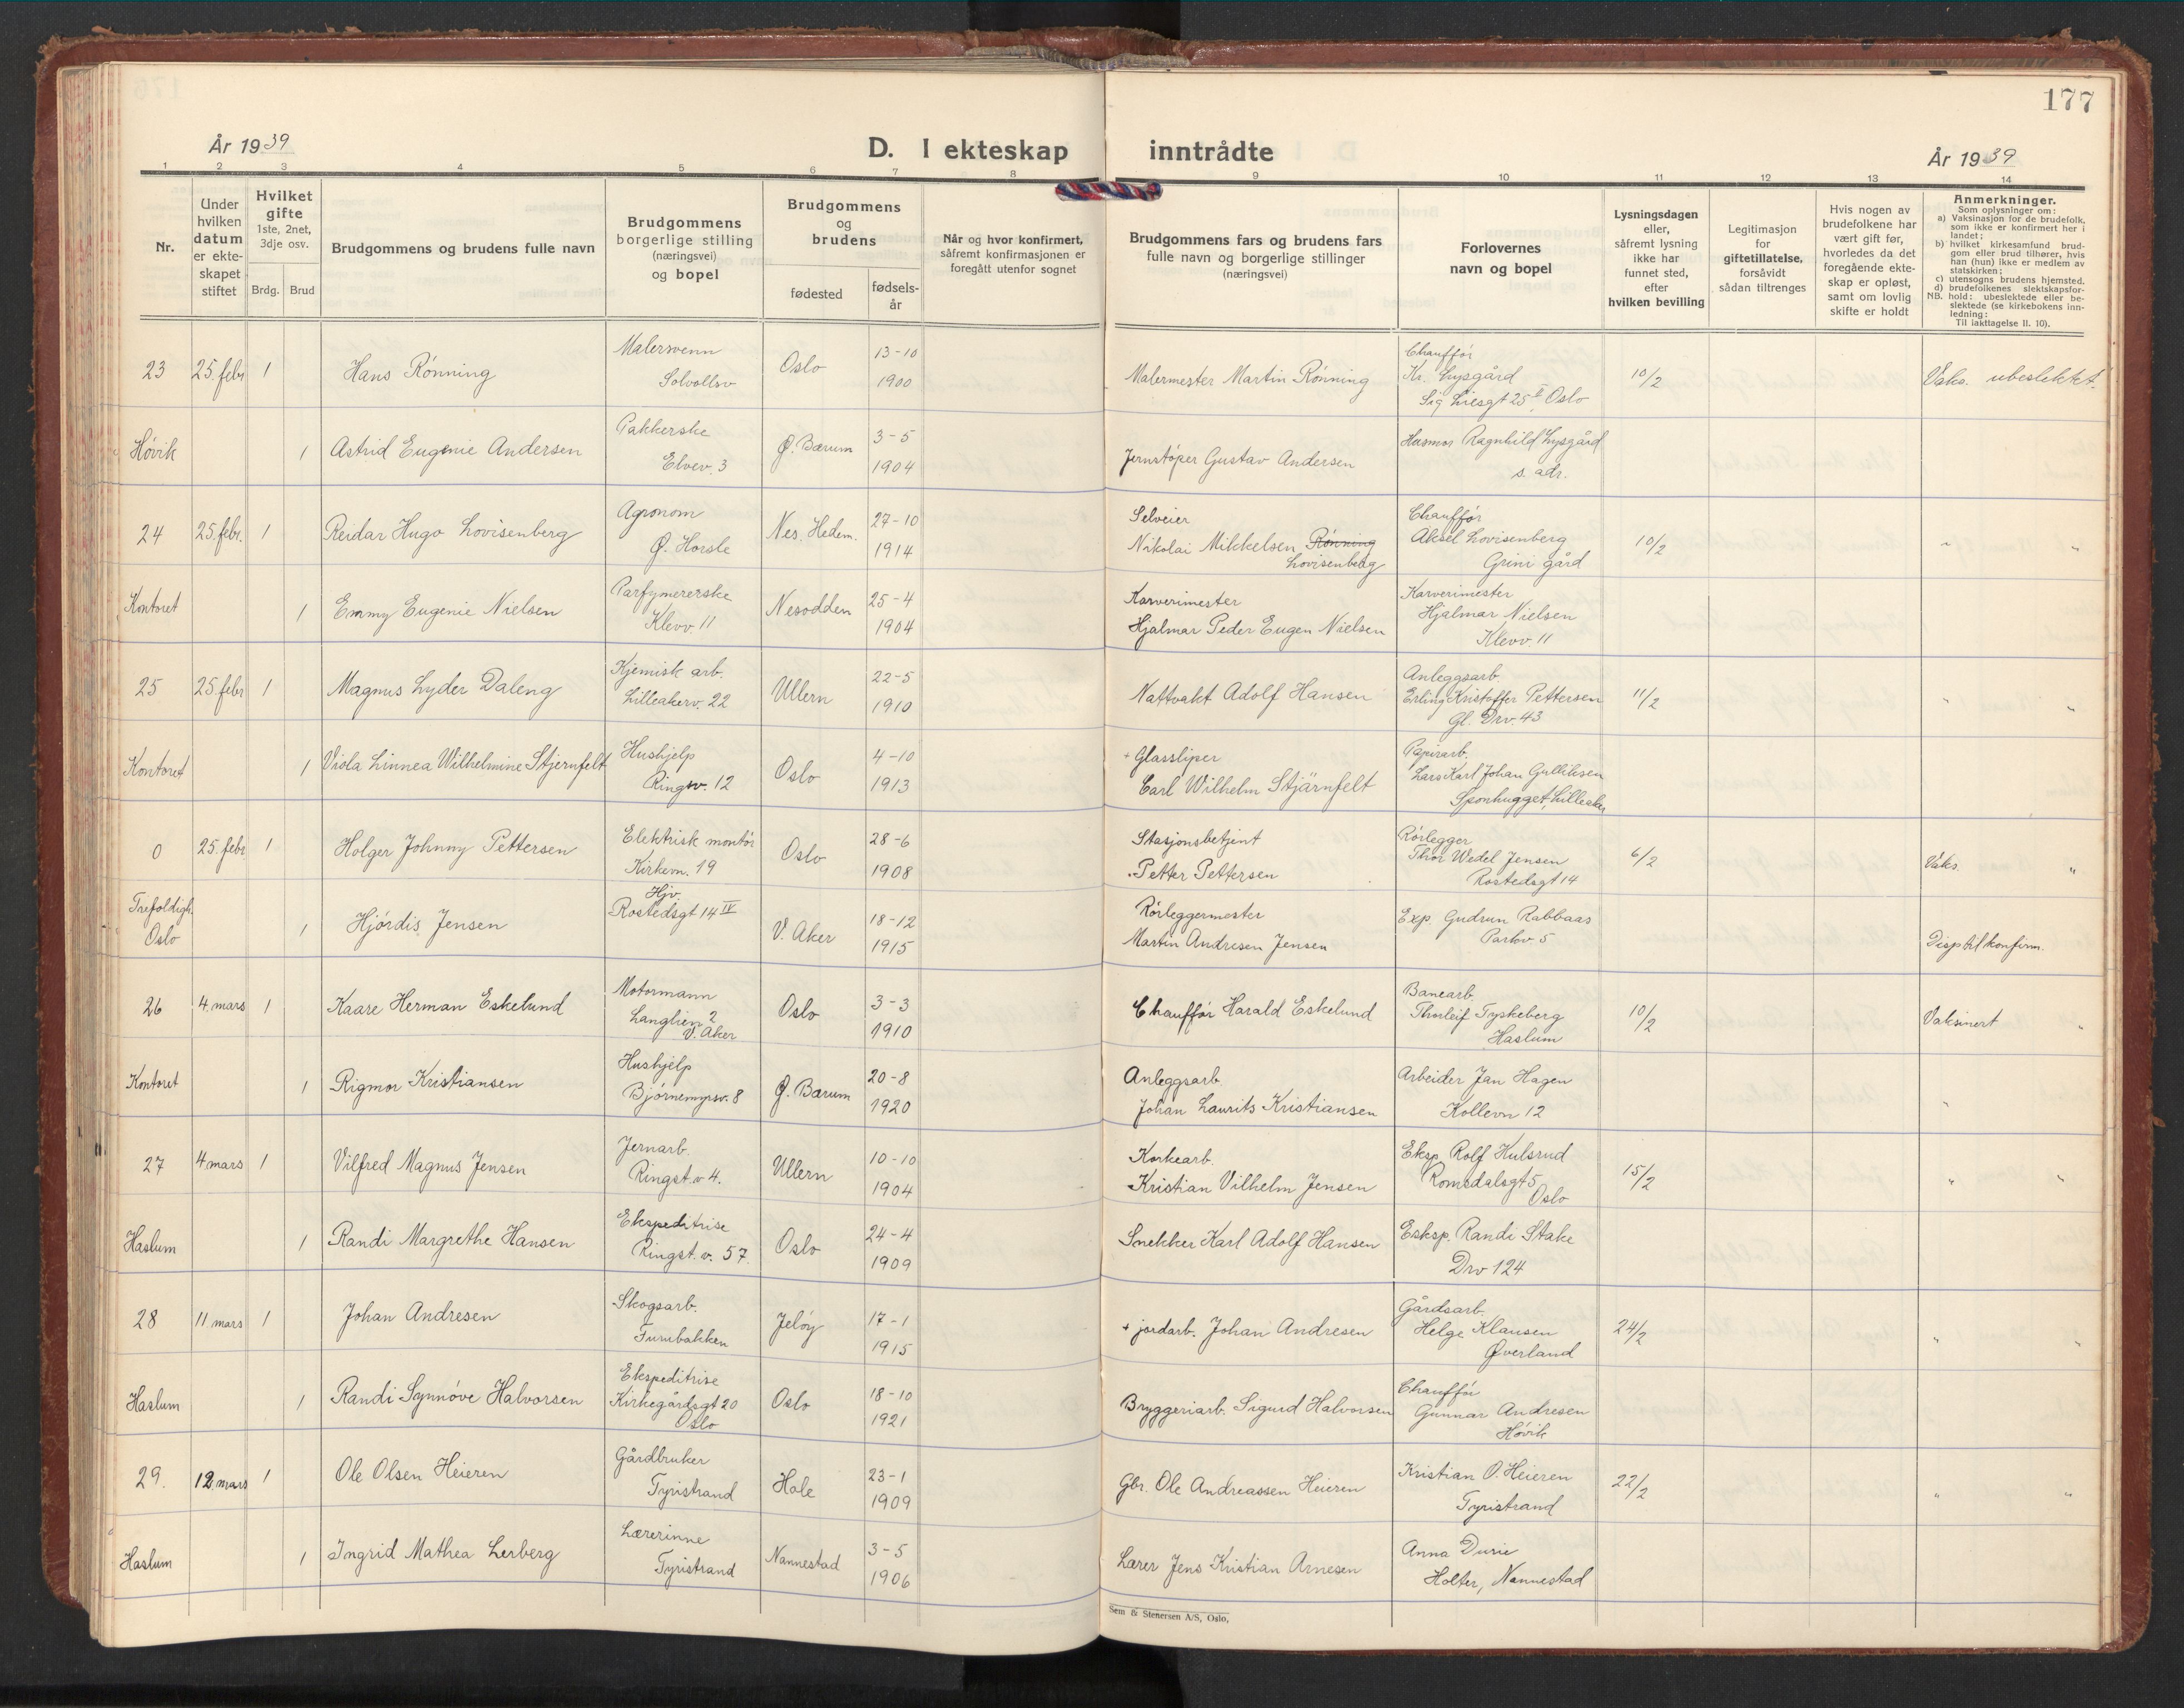 177
År 1939
D. I ekteskap inntrådte
År 1939
1 2 3 4 5 6 7 8 9 10 11 12 13 14
Nr.
Under hvilken datum er ekteskapet stiftet
Hvilket gifte 1ste, 2net, 3dje osv.
Brdg. Brud
Brudgommens og brudens fulle navn
Brudgommens borgerlige stilling (næringsvei) og bopel
Brudgommens og brudens
fødested
fødselsår
Når og hvor konfirmert, såfremt konfirmasjonen er foregått utenfor sognet
Brudgommens fars og brudens fars fulle navn og borgerlige stillinger (næringsvei)
Forlovernes navn og bopel
Lysningsdagen eller, såfremt lysning ikke har funnet sted, efter hvilken bevilling
Legitimasjon for giftetillatelse, forsåvidt sådan tiltrenges
Hvis nogen av brudefolkene har vært gift før, hvorledes da det foregående ekteskap er opløst, samt om lovlig skifte er holdt
Anmerkninger.
Som oplysninger om:
a) Vaksinasjon for de brudefolk, som ikke er konfirmert her i landet;
b) hvilket kirkesamfund brudgom eller brud tilhører, hvis han (hun) ikke er medlem av statskirken;
c) utensogns brudens hjemsted.
d) brudefolkenes slektskapsforhold: ubeslektede eller beslektede (se kirkebokens innledning:
NB.
Til iakttagelse II. 10).
23 25. febr 1 Hans Rönning Malersvenn Solvollsv Oslo 13-10 1900 Malermester Martin Rönning Chaufför Kr. Lysgård Sig. Liesgt 25 II, Oslo 10/2 Vaks. ubeslektet.
Hövik 1 Astrid Eugenie Andersen Pakkerske Elvev. 3 Ø. Bærum 3-5 1904 Jernstöper Gustav Andersen Husmor Ragnhild Lysgård s. adr.
24 25. febr. 1 Reidar Hugo Lovisenberg Agronom Ø. Horsle Nes, Hedem. 27-10 1914 Selveier Nikolai Mikkelsen Rönning Lovisenberg Chaufför Aksel Lovisenberg Grini gård 10/2 " "
Kontoret 1 Emmy Eugenie Nielsen Parfymererske Klevv. 11 Nesodden 25-4 1904 Garverimester Hjalmar Peder Eugen Nielsen Garverimester Hjalmar Nielsen Klevv. 11
25 25 febr 1 Magnus Lyder Daleng Kjemisk arb. Lilleakerv. 22 Ullern 22-5 1910 Nattvakt Adolf Hansen Anleggsarb. Erling Kristoffer Pettersen Gl. Drv. 43 11/2 " "
Kontoret 1 Viola Linnea Wilhelmine Stjernfelt Hushjelp Ringsv. 12 Oslo 4-10 1913 + Glassliper Carl Wilhelm Stjärnfelt Papirarb. Lars Karl Johan Gulliksen Sponhugget, Lilleaker
0 25. febr 1 Holger Johnny Pettersen Elektrisk montör Kirkevn. 19 Oslo 28-6 1908 Stasjonsbetjent Petter Pettersen Rörlegger Thor Wedel Jensen Rostedsgt 14 6/2 Vaks. "
Trefoldigh. Oslo 1 Hjördis Jensen Hjv. Rostedsgt 14 IV V. Aker 18-12 1915 Rörleggermester Martin Andresen Jensen Exp. Gudrun Rabbaas Parkv 5 Disp til konfirm.
26 4. mars 1 Kaare Herman Eskelund Motormann Langlien 2 V. Aker Oslo 3-3 1910 Chaufför Harald Eskelund Banearb. Thorleif Tyskeberg Haslum 10/2 Vaksinert "
Kontoret 1 Rigmor Kristiansen Hushjelp Björnemyrsv. 8 Ø. Bærum 20-8 1920 Anleggsarb. Johan Laurits Kristiansen Arbeider Jan Hagen Kollevn 12 "
27 4. mars 1 Vilfred Magnus Jensen Jernarb. Ringst. v 4. Ullern 10-10 1904 Korkearb. Kristian Vilhelm Jensen Eksp. Rolf Hulsrud Romsdalsgt 5 Oslo 15/2 " "
Haslum 1 Randi Margrethe Hansen Ekspeditrise Ringst. v. 57. Oslo 24-4 1909 Snekker Karl Adolf Hansen Eeksp. Randi Stake Drv 124
28 11 mars 1 Johan Andresen Skogsarb. Furubakken Jelöy 17-1 1915 + jordarb. Johan Andresen Gårdsarb. Helge Klausen Øverland 24/2 " "
Haslum 1 Randi Synnöve Halvorsen Ekspeditrise Kirkegårdsgt 20 Oslo Oslo 18-10 1921 Bryggeriarb. Sigurd Halvorsen Chaufför Gunnar Andresen Hövik
29. 12. mars 1 Ole Olsen Heieren Gårdbruker Tyristrand Hole 23-1 1909 Gbr. Ole Andreassen Heieren Kristian O. Heieren Tyristrand 22/2 " "
Haslum 1 Ingrid Mathea Lerberg Lærerinne Tyristrand Nannestad 3-5 1906 Lærer Jens Kristian Arnesen Anna Durie Holter, Nannestad
Sem & Stenersen A/S, Oslo.